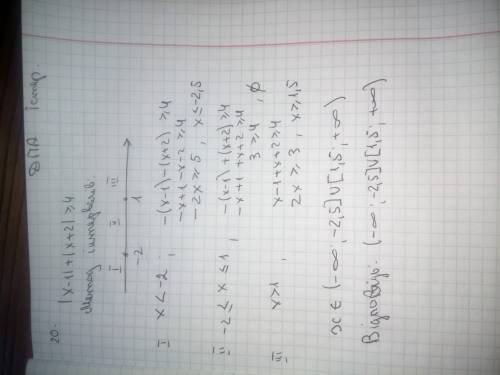 ДПА істор.
20. |x-1|+|x+2| ≥ 4
Метод інтервалів.
I II III
-2 1
I x < -2 ; -(x-1)-(x+2) ≥ 4
-x+1-x-2 ≥ 4
-2x ≥ 5 , x ≤ -2,5
II -2 ≤ x ≤ 1 ; -(x-1)+(x+2) ≥ 4
-x+1+x+2 ≥ 4
3 ≥ 4 , ∅
III x > 1 , x-1+x+2 ≥ 4
2x ≥ 3 , x ≥ 1,5
x ∈ (-∞; -2,5] ∪ [1,5; +∞)
Відповідь: (-∞; -2,5] ∪ [1,5; +∞)